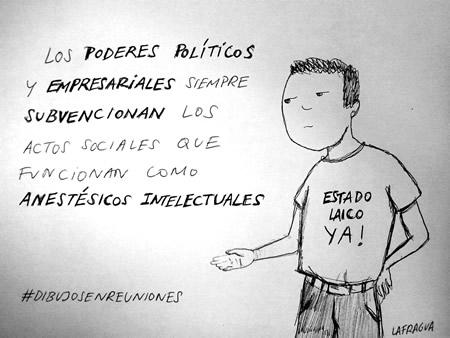 LOS PODERES POLÍTICOS
Y EMPRESARIALES SIEMPRE
SUBVENCIONAN LOS
ACTOS SOCIALES QUE
FUNCIONAN COMO
ANESTÉSICOS INTELECTUALES
ESTADO
LAICO
YA!
#DIBUJOSENREUNIONES
LAFRAGUA